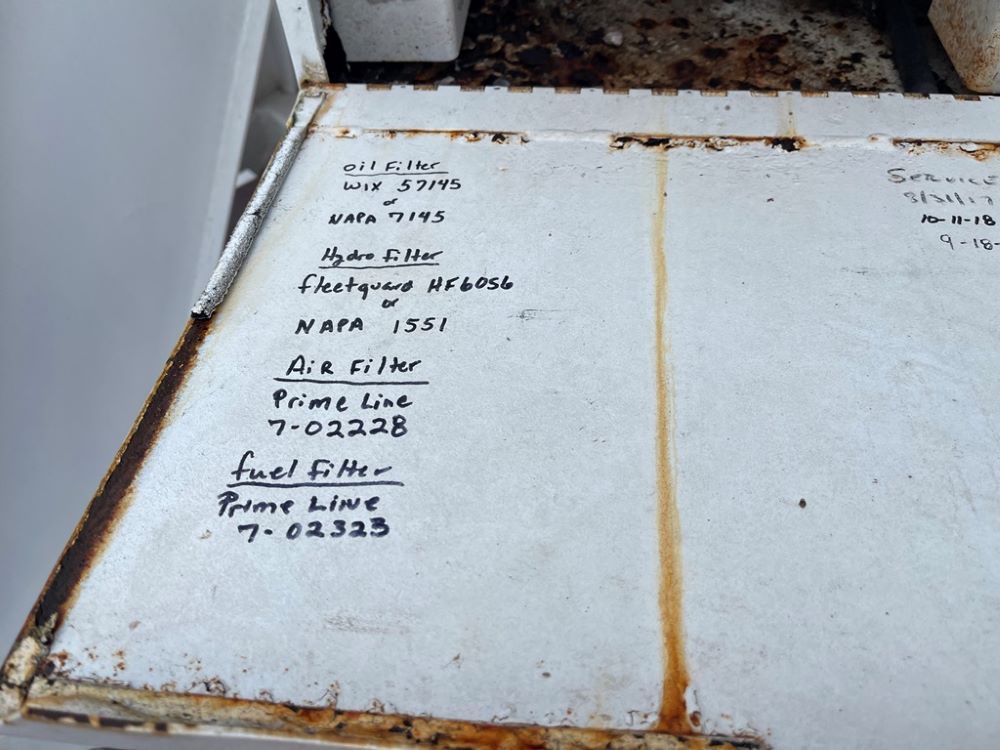 oil Filter
WIX 57145
or
NAPA 7145
Hydro Filter
fleetguard HF6056
or
NAPA 1551
AiR Filter
Prime Line
7-02228
fuel Filter
Prime LINE
7-02323
SERVICE
8/31/17
10-11-18
9-18-